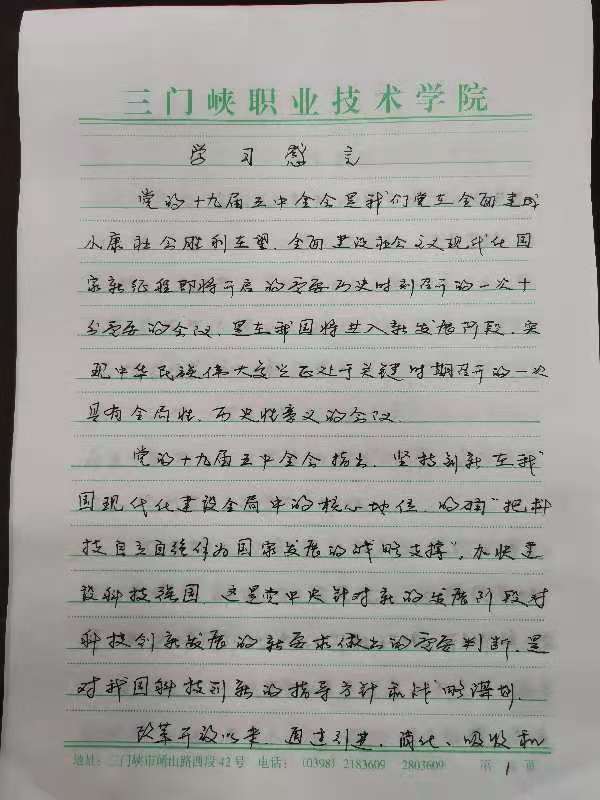 三门峡职业技术学院
学习感言
党的十九届五中全会是我们党在全面建成
小康社会胜利在望、全面建设社会主义现代化国
家新征程即将开启的重要历史时刻召开的一次十
分重要的会议，是在我国将进入新发展阶段、实
现中华民族伟大复兴正处于关键时期召开的一次
具有全局性、历史性意义的会议。
党的十九届五中全会指出，坚持创新在我
国现代化建设全局中的核心地位，的"把科
技自立自强作为国家发展的战略支撑"，加快建
设科技强国，这是党中央针对新的发展阶段对
科技创新发展的新要求做出的重要判断，是
对我国科技创新的指导方针和战略谋划。
改革开放以来，通过引进、消化、吸收和
地址：三门峡市崤山路西段42号 电话：（0398）2183609 2803609 第 1 页